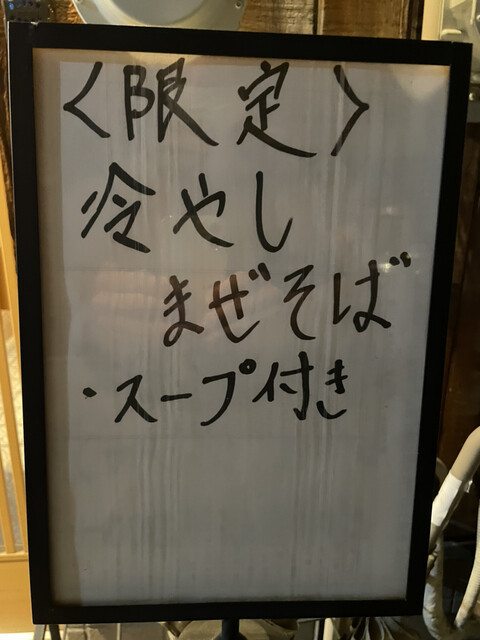 〈限定〉
冷やし
まぜそば
・スープ付き